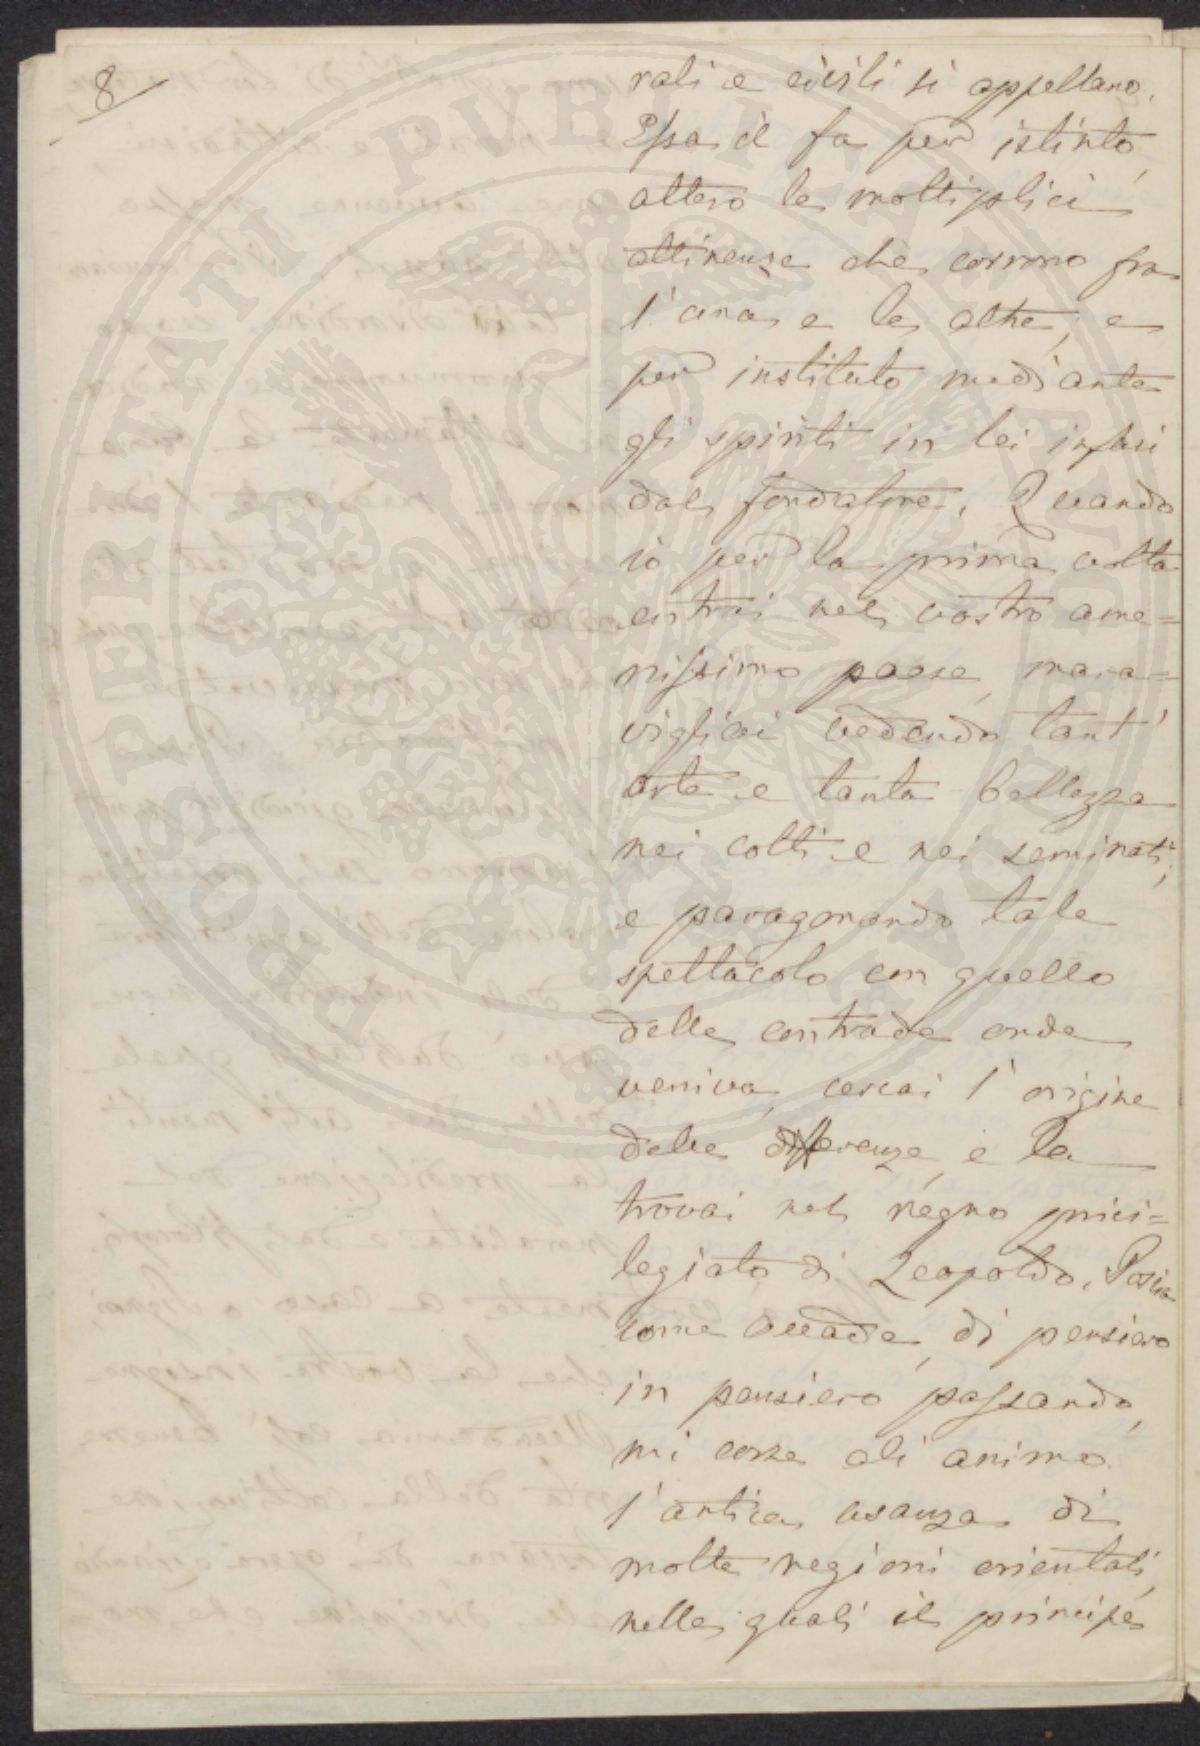 8
rali e civili si appellano.
Essa il fa per istinto,
atteso le moltiplici
attinenze che corrono fra
l'una e le altre, e
per instituto mediante
gli spiriti in lei infusi
dal fondatore. Quando
io per la prima volta
entrai nel vostro ame=
nissimo paese, mara=
vigliai vedendo tant'
arte e tanta bellezza
nei colti e nei seminati;
e paragonando tale
spettacolo con quello
delle contrade onde
veniva, cercai l'origine
delle differenze, e la
trovai nel regno privi=
legiato di Leopoldo. Poscia
come accade, di pensiero
in pensiero passando,
mi corse all'animo
l'antica usanza di
molte regioni orientali,
nelle quali il principe
PROSPERITATI PUBLICAE AUGENDAE